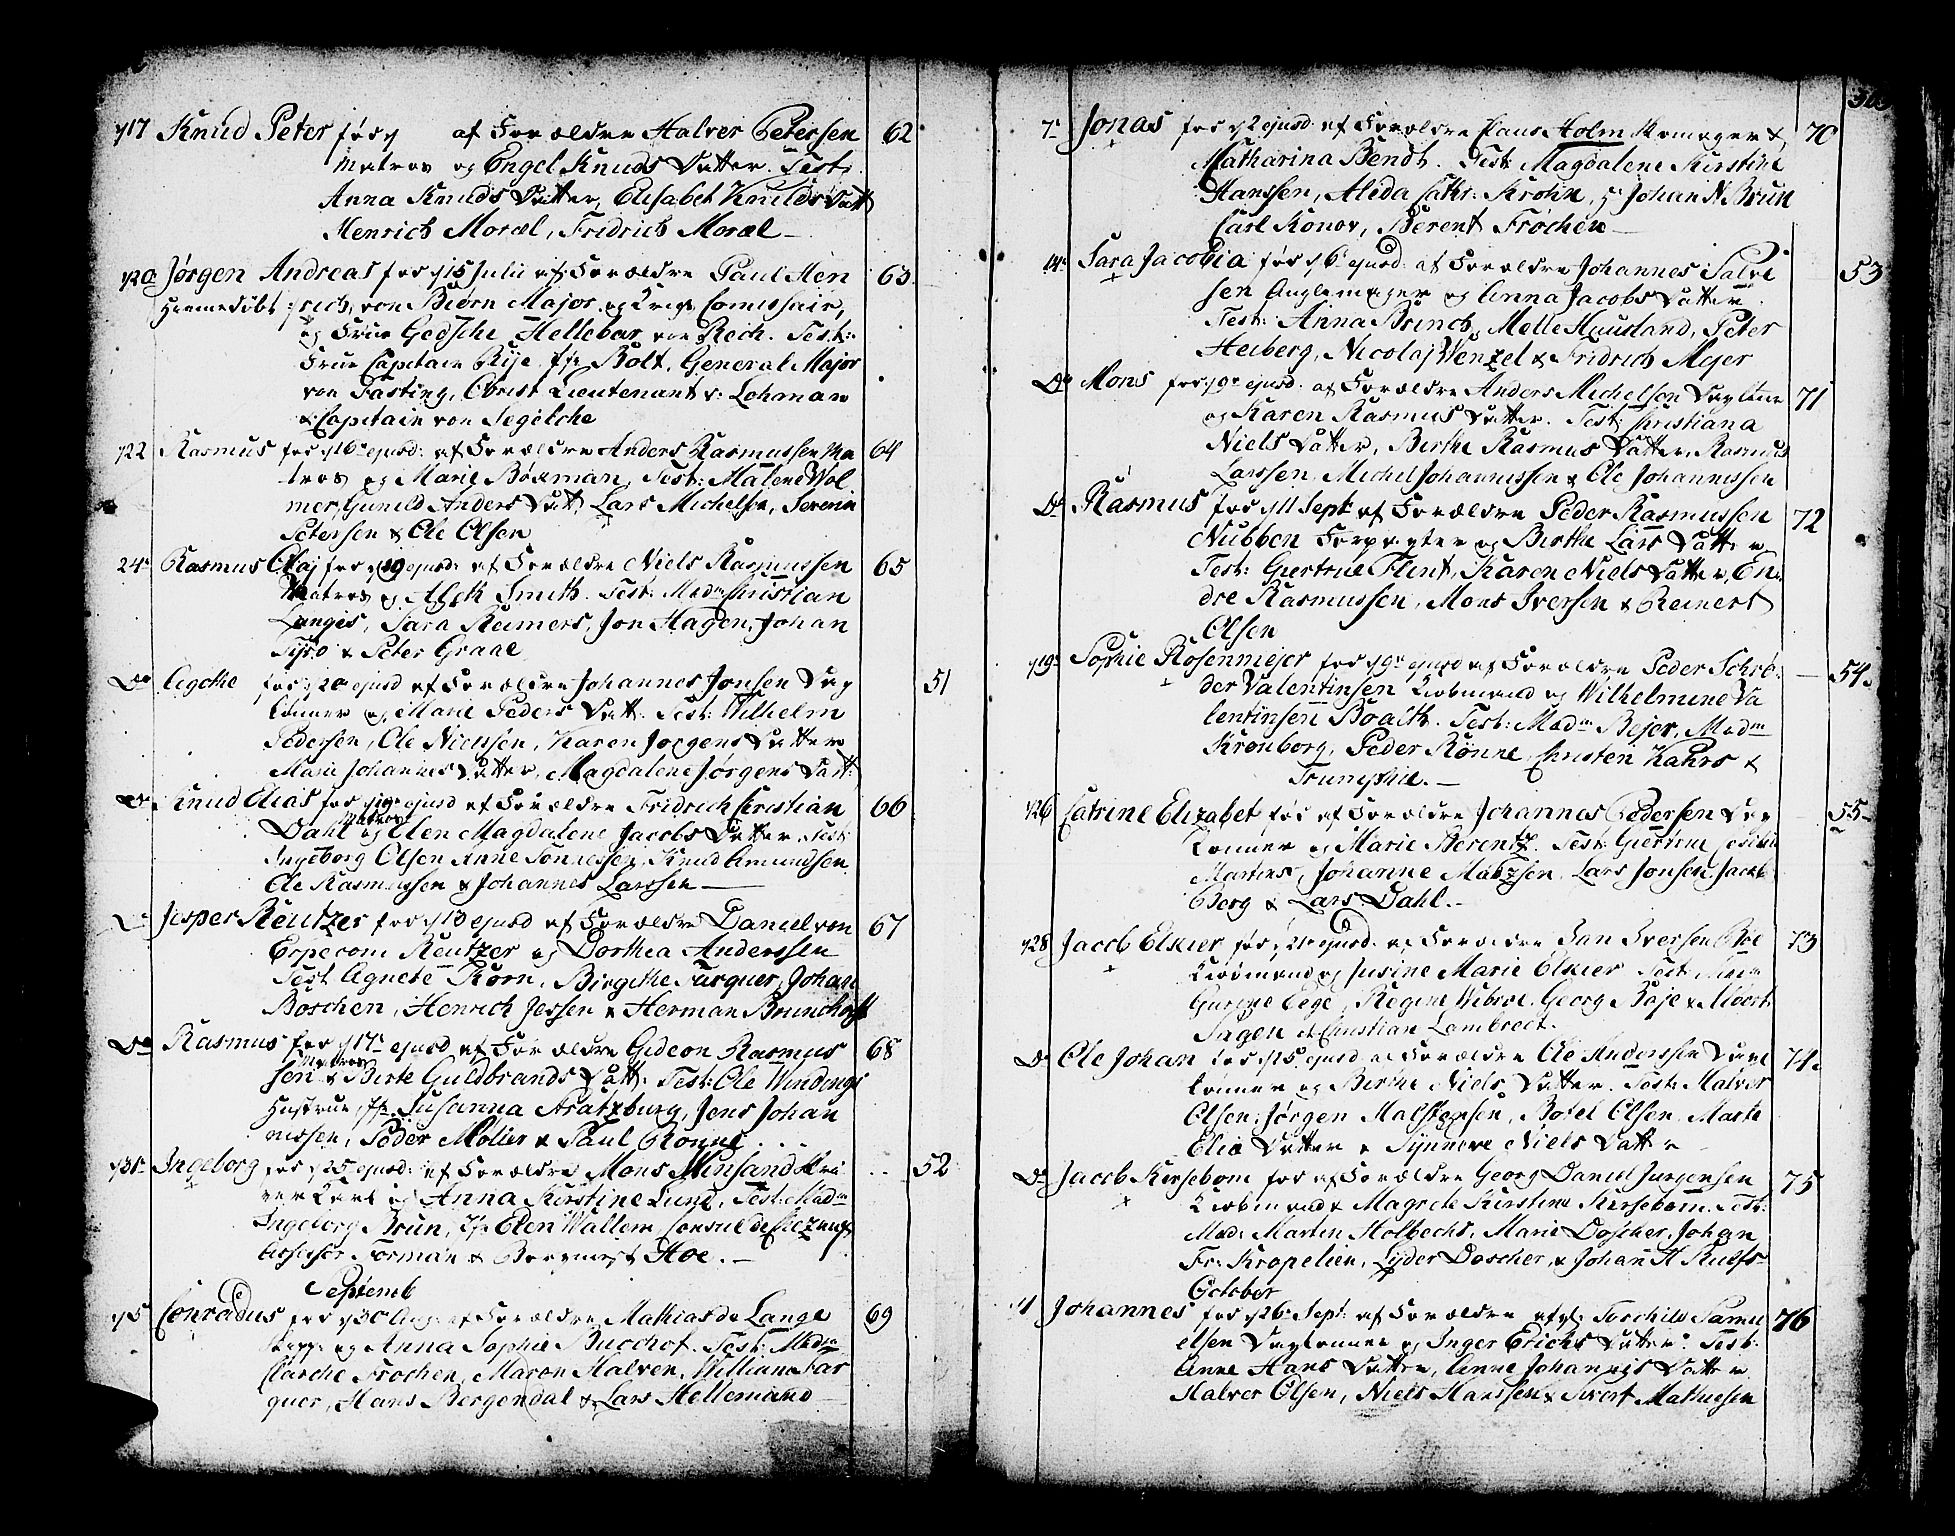 y17 Knud Peter fød y af Forældre Halver Petersen 62
Matros og Engel Knuds Datter. Test:
Anna Knuds Datter, Elisabet Knuds Datt
Henrich Moræl, Fridrich Moræl
y20 Jørgen Andreas fød y15 Julii af Forældre Paul Hen 63
Hiemmedøbt rich von Biørn Major og Krigs Comissair,
og Frue Godsche Hellebar von Rech. Test:
Frue Capitain Rije Jfr Bolt, General Major
von Fasting, Obrist Lieutenant v: Lohman
& Capitain von Segelche
y22 Rasmus fød y16 ejusd: af Forældre Anders Rasmussen Ma 64
tros og Marie Børman, Test: Malene Wol
mer, Gunild Anders Datt, Lars Michelsen, Severin
Petersen & Ole Olsen
24 Rasmus Olaj fød y19 ejusd: af Forældre Niels Rasmussen 65
Matros og Alch Smith. Test: Madm Christian
Langes, Sara Reimers, Jon Hagen, Johan
Tyro & Peter Graae
Do Aigethe fød y20 ejusd af Forældre Johannes Jonsen Dag 51
lønner og Marie Peders Datt: Test: Wilhelm
Pedersen, Ole Nielssen, Karen Jørgens Datter
Marie Johannes Datter, Magdalene Jørgens Datt:
Do Knud Elias fød y19 ejusd af Forældre Fridrich Christian 66
Matros
Dahl og Elen Magdalene Jacobs Datter. Test:
Ingeborg Olsen Anne Tonnessen, Knud Amundsen
Ole Rasmussen & Johannes Larssen
Do Jesper Reutzer fød y13 ejusd af Forældre Daniel von 67
Erpecom Reutzer og Dorthea Anderssen
Test Agnete Korn, Birgithe Farquer, Johan
Boschen, Henrich Jessen & Herman Brunchorst
Do Rasmus fød y17 ejusd af Forældre Gideon Rasmus 68
Matros
sen & Birte Guldbrands Datt: Test: Ole Windings
Hustrue, Jfr Susanna Kratzburg, Jens Johan
nessen, Peder Møller & Paul Rønne
y31 Ingeborg fød y25 ejusd: af Forældre Mons Minsand 52
og Anna Kirstine Lund, Test: Madm
Ingeborg Brun, Jfr Elen Wallem, Consul
Assessor Forman & Hoe.
Septemb
y5 Conradus fød y30 Aug: af Forældre Mathias de Lange 69
Skipp: og Anna Sophie Bucchof. Test: Madm
Clarche Frochen, Maron Halven, William Far
quer, Hans Bergendal & Lars Hellemand
7 Jonas fød y2 ejusd af Forældre Claus Holm Skomager & 70
Catharina Bendt. Test: Magdalene Kirstine
Hanssen, Alida Cathr: Krohn, Hr Johan N Brun
Carl Konov, Berent Frochen
14 Sara Jacobia fød y6 ejusd: af Forældre Johannes Salve 53
sen Anglemager og Anna Jacobs Datter
Test: Anna Brinch, Molle Huusland, Peter
Heiberg, Nicolaj Wenzel & Fridrich Mejer
Do Mons fød y9 ejusd: af Forældre Anders Michelsen Daglønn 71
og Karen Rasmus Datter. Test: Christiana
Niels Datter, Berthe Rasmus Datter, Rasmus
Larssen, Michel Johannessen & Ole Johannessen
Do Rasmus fød y11 Sept af Forældre Peder Rasmussen 72
Nubben Forpagter og Birthe Lars Datter
Test: Giertrue Flint, Karen Niels Datter, En
dre Rasmussen, Mons Iversen & Reinert
Olsen
y19 Sophie Rosenmejer fød y9 ejusd af Forældre Peder Schrø 54
der Valentinsen Kiøbmand og Wilhelmine Va
lentinsen Boalth. Test: Madm Bejer, Madm
Kronborg, Peder Rønne, Christen Kahrs &
Trumphie.
y26 Catrine Elizabet fød af Forældre Johannes Pedersen Dag 55
lønner og Marie Berentz. Test: Giertrue
Martens, Johanne Matzsen, Lars Jonsen, Jacob
Berg & Lars Dahl.
y28 Jacob Elxier fød y21 ejusd: af Forældre Jan Iversen Boe 73
Kiøbmand og Jusine Marie Elxier Test: Madm
Gurine Eege, Regine Wibroe, Georg Baje & Albert
Jagen & Christian Lambrect.
Do Ole Johan fød y25 ejusd af Forældre Ole Anderssen Dag 74
lønner og Berthe Niels Datter. Test: Halver
Olsen, Jørgen Malstensen, Botel Olsen, Marte
Elia Datter & Synneve Niels Datter
Do Jacob Kirsebom fød af Forældre Georg Daniel Jurgensen 75
Kiøbmand & Magrete Kirstine Kirsebom. Test:
Mad: Marten Holbechs, Marie Doscher, Johan
Fr: Kropelien, Lyder Doscher, & Johan H Ruefs
October
11 Johannes fød y26 Sept: af Forældre afg: Torchild Samu 76
elsen Daglønner og Inger Erichs Datter: Test:
Anne Hans Datter, Anne Johannis Datter
Halver Olsen, Niels Hanssen & Sivert Mathiesen